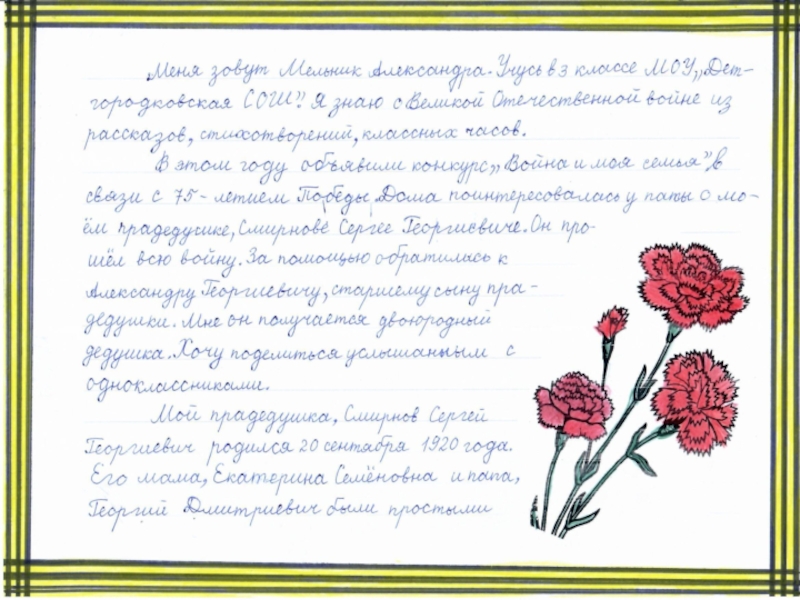 Меня зовут Мельник Александра. Учусь в 3 классе МОУ „Дет-
городковская СОШ". Я знаю о Великой Отечественной войне из
рассказов, стихотворений, классных часов.
В этом году объявили конкурс „Война и моя семья", в
связи с 75-летием Победы. Дома поинтересовалась у папы о мо-
ём прадедушке, Смирнове Сергее Георгиевиче. Он про-
шёл всю войну. За помощью обратилась к
Александру Георгиевичу, старшему сыну пра-
дедушки. Мне он получается двоюродный
дедушка. Хочу поделиться услышанным с
одноклассниками.
Мой прадедушка, Смирнов Сергей
Георгиевич родился 20 сентября 1920 года.
Его мама, Екатерина Семёновна и папа,
Георгий Дмитриевич были простыми